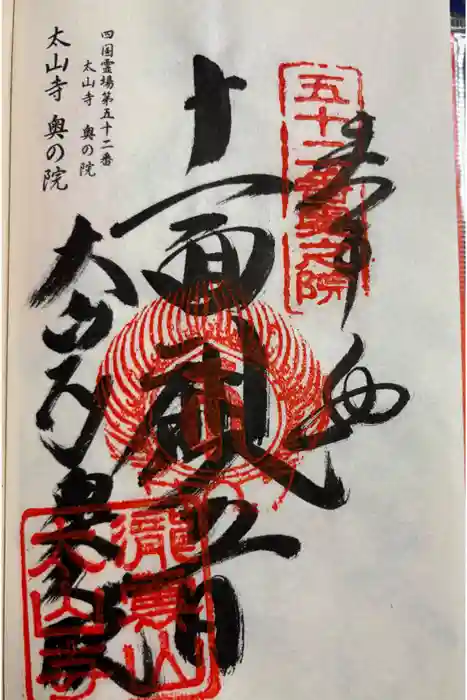 五十二番奥之院
奉納
十一面観音
四国霊場第五十二番
太山寺 奥の院
太山寺 奥の院
太山寺奥之院
瀧雲山
太山寺